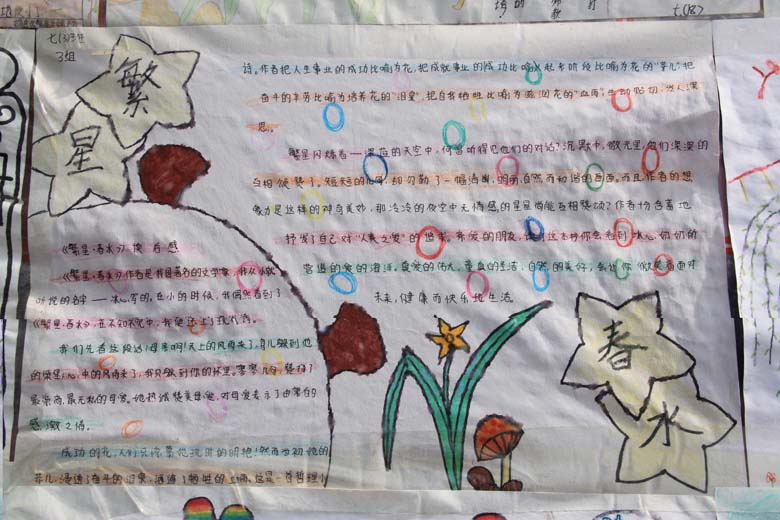 七(3)班
3组
繁
星
《繁星·春水》读后感
《繁星·春水》作者是我国著名的文学家
冰心写的。在小的时候，我偶然看到了
《繁星·春水》，在不知不觉中，我便迷上了
我们先看这段话！母亲啊！天上的风雨来了，鸟儿躲到他
的巢里；心中的风雨来了，我只躲到你的怀里。寥寥几句，赞颂了
最崇高，最无私的母爱。她热诚赞美母爱，对母爱表示了由衷的
感激之情。
成功的花，人们只惊慕她现时的明艳！然而当初她的
芽儿，浸透了奋斗的泪泉，洒遍了牺牲的血雨。这是一首哲理
诗。作者把人生事业的成功比喻为花，把成就事业的成功比喻 起步阶段比喻为花的"芽儿"，把
奋斗的辛劳比喻为培养花的"泪泉"，把自我牺牲比喻为 花的"血雨"。生动贴切，令人深
思。
繁星闪烁着——深蓝的天空中，何曾听得见他们的对话？沉默中，微光里，他们深深的
互相颂赞了。短短的 ，却勾勒了一幅清幽、明丽、自然而和谐的画面。而且作者的想
象力是这样的神奇美妙，那冷冷的夜空中无情感的星星尚能互相赞颂？作者十分含蓄地
抒发了自己对"人类之爱"的追求。亲爱的朋友，
的爱的海洋。真爱的伟大，童真的生活，自然的美好，
未来，健康而快乐地生活。
春
水